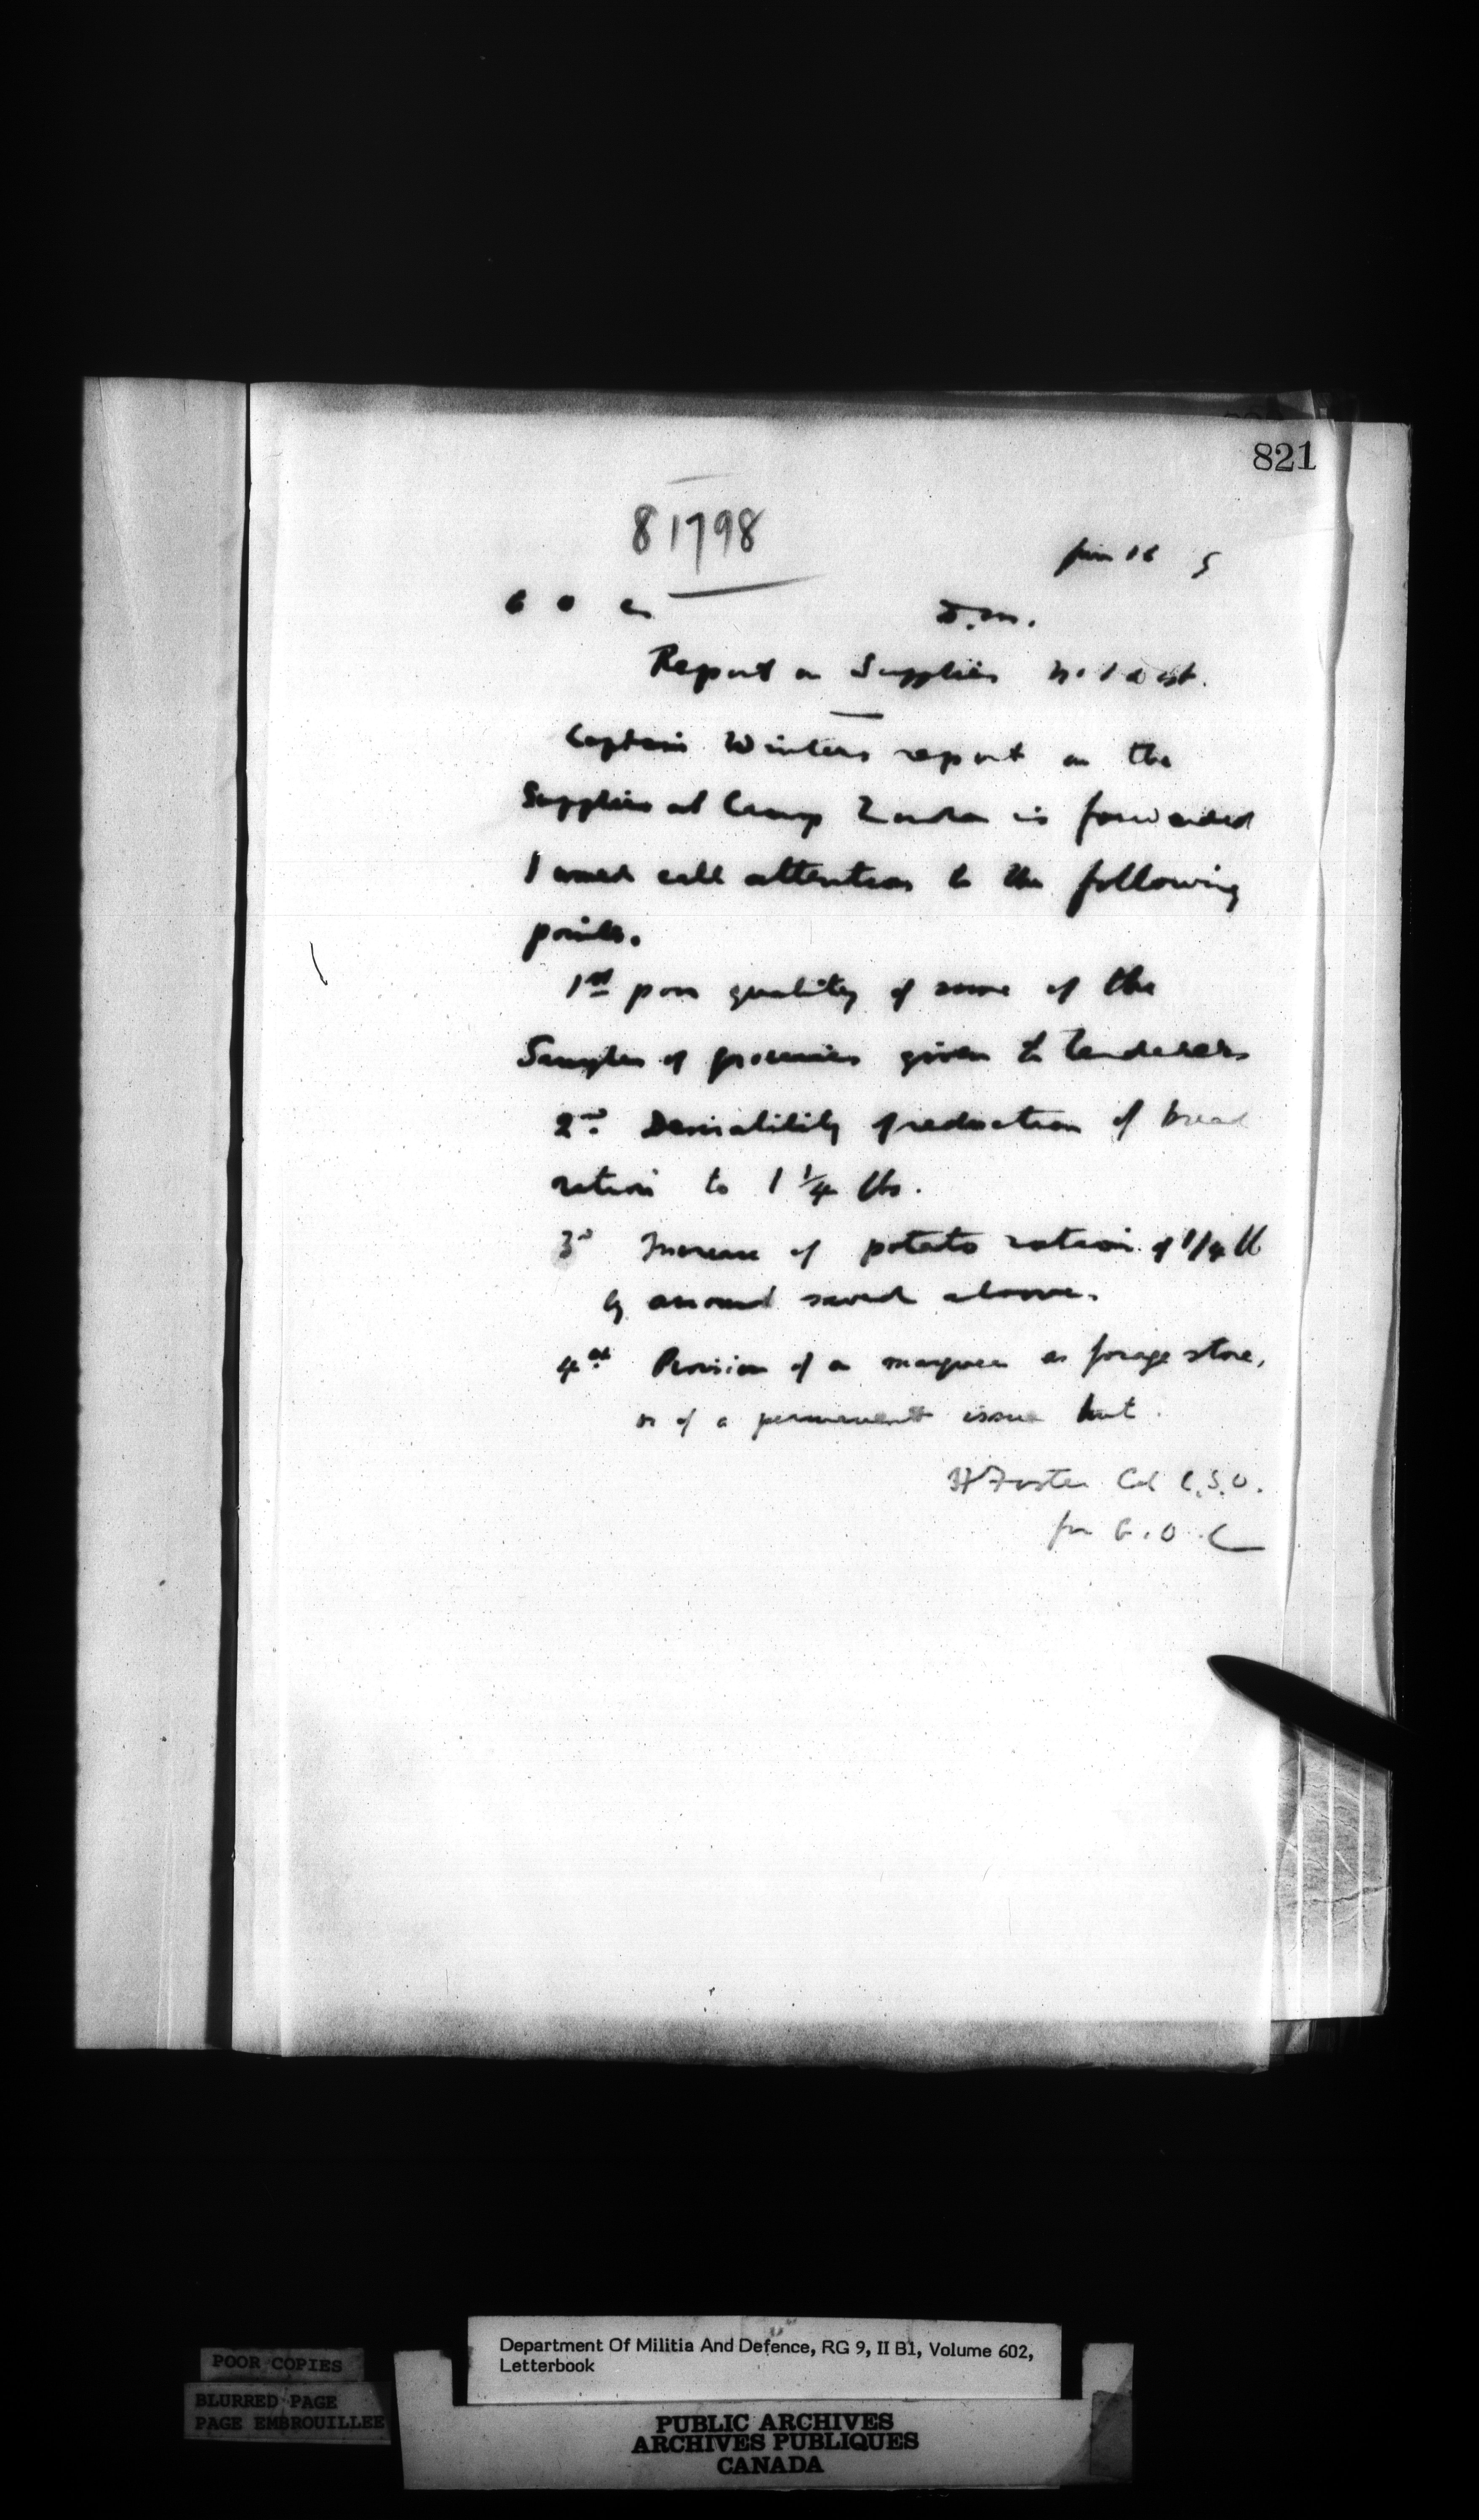 821
81798
June 16 5
G O C
D.M.
Report on Supplies No 1 Dist.
Captain Winters report on the
Supplies at Camp London is forwarded
I would call attention to the following
points.
1st poor quality of some of the
Samples of groceries given to tenderers
2nd Desirability of reduction of bread
ration to 1 1/4 lbs.
3d Increase of potato ration of 1/4 lb
by amount saved above.
4th Provision of a marquee as forage store,
or of a permanent issue hut.
H Foster Col C.S.O.
for G.O.C
Department Of Militia And Defence, RG 9, II B1, Volume 602,
Letterbook
POOR COPIES
BLURRED PAGE
PAGE EMBROUILLEE
PUBLIC ARCHIVES
ARCHIVES PUBLIQUES
CANADA